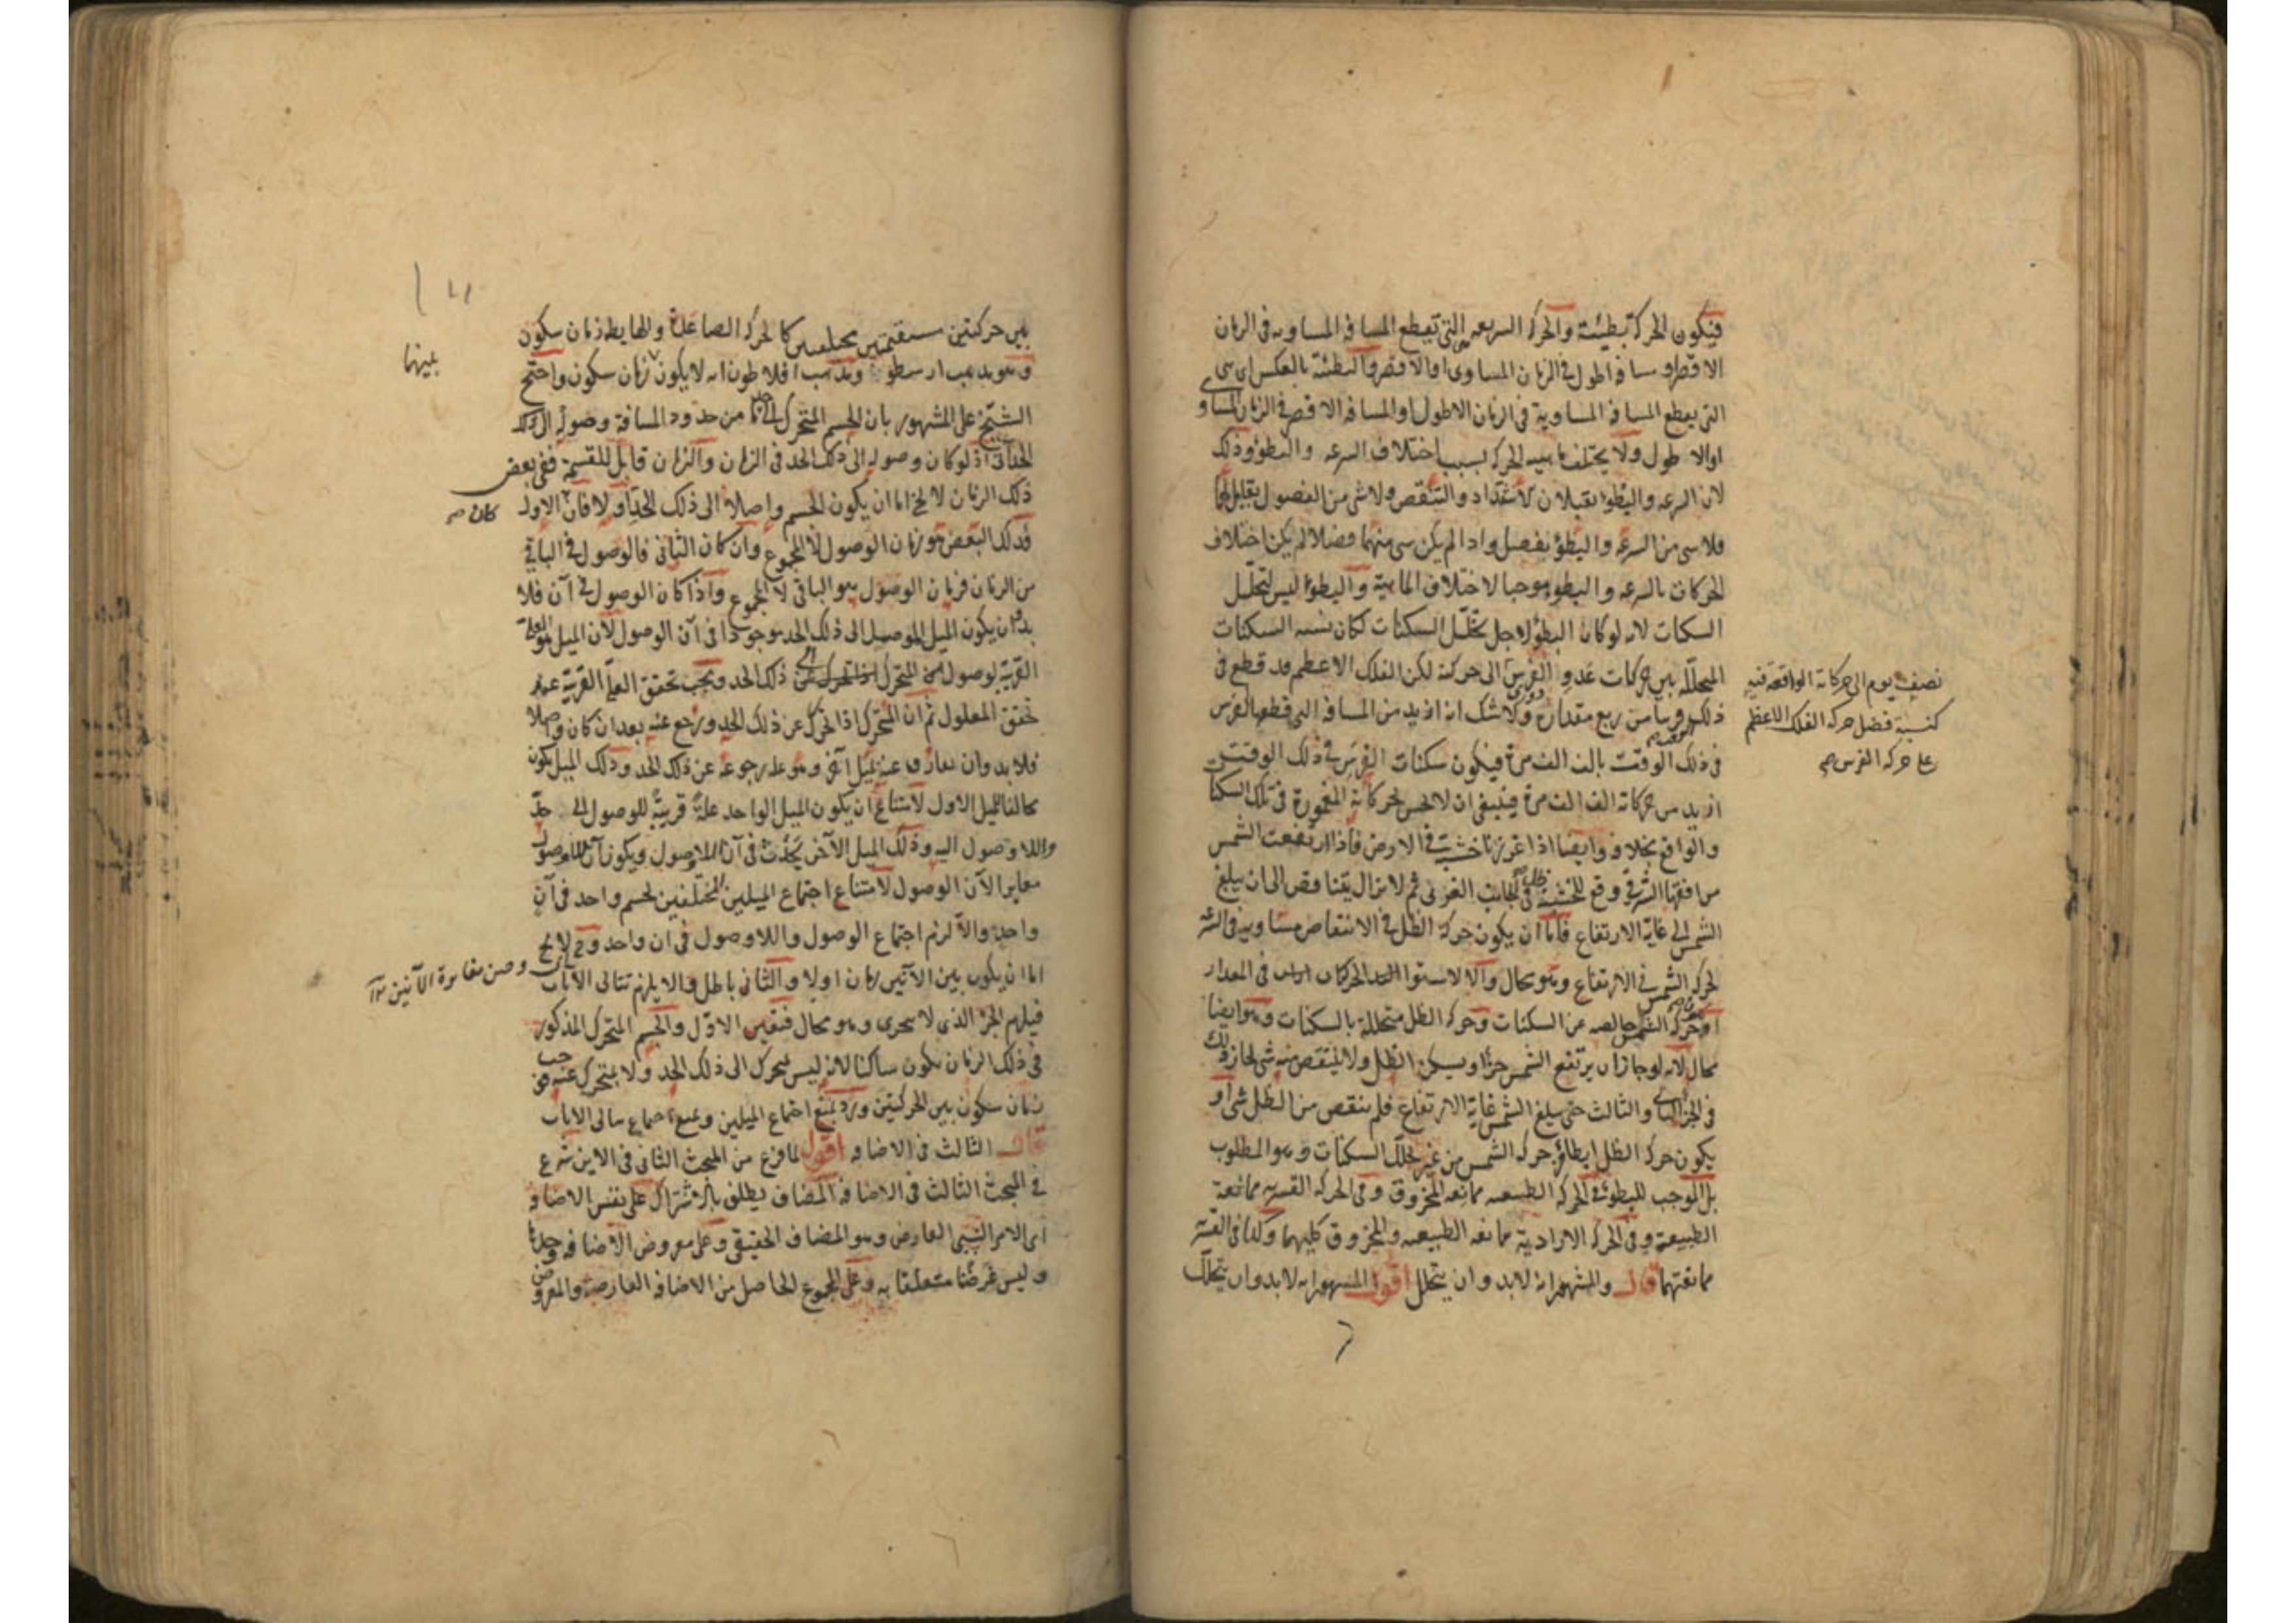 فيكون الحركة بطيئة والحركة السريعة هى التى تقطع المسافة المساوية فى الزمان
الاقصر او مسافة اطول فى الزمان المساوى او الاقصر والبطئة بالعكس اى هى
التى يقطع المسافة المساوية فى الزمان الاطول او المسافة الاقصر فى الزمان المساوى
او الاطول ولا يختلف ماهية الحركة بسبب اختلاف السرعه والبطؤ وذلك
لان السرعه والبطؤ يقبلان الاشتداد والتنقص ولا شى من الفصول يقابل لهما
فلا شى من السرعة والبطؤ بفصل واذا لم يكن شى منهما فصلا لم يكن اختلاف
الحركات بالسرعه والبطؤ موجبا لاختلاف الماهية والبطؤ ليس لتخلل
السكنات لانه لو كان البطؤ لاجل تخلل السكنات لكان نسبه السكنات
المتخللة بين حركات عدو الفرس الى حركته لكن الفلك الاعظم قد قطع فى
نصف يوم الى حركاته الواقعة فيه
كنسبة فضل حركه الفلك الاعظم
على حركه الفرس صح
ذلك قريبا من ربع مقداره ولا شك انه ازيد من المسافة التى قطعها الفرس
فى ذلك الوقت بالف الف مرة فيكون سكنات الفرس فى ذلك الوقت
ازيد من حركاته الف الف مرة فينبغى ان لا يحس بحركاته المغمورة فى تلك السكنات
والواقع بخلافه وايضا اذا غرزنا خشبة فى الارض فاذا ارتفعت الشمس
من افقها الشرقى وقع للخشبة ظل فى الجانب الغربى ثم لا يزال يتناقص الى ان يبلغ
الشمس الى غاية الارتفاع فاما ان يكون حركة الظل فى الانتقاص مساوية فى السرعة
لحركة الشمس فى الارتفاع وهو محال والا لاستوا الحركتان فى المقدار
او حركة الشمس خالصه عن السكنات وحركه الظل متخللة بالسكنات وهو ايضا
محال لانه لو جاز ان يرتفع الشمس جزءا ويسكن الظل ولا ينتقص منه شى لجاز ذلك
فى الجزء الثانى والثالث حتى يبلغ الشمس غاية الارتفاع فلم ينقص من الظل شى او
يكون حركه الظل ابطا من حركه الشمس من غير تخلل السكنات وهو المطلوب
بل الموجب للبطؤ فى الحركه الطبيعيه ممانعه المخروق وفى الحركه القسريه ممانعة
الطبيعة وفى الحركه الارادية ممانعه الطبيعه والمخروق كليهما وكذا فى القسرية
ممانعتهما قال والمشهور انه لابد وان يتخلل اقول المشهور انه لابد وان يتخلل
بين حركتين مستقيمتين مختلفتين كالحركه الصاعدة والهابطه زمان سكون
بينهما
وهو مذهب ارسطو ومذهب افلاطون انه لا يكون زمان سكون واحتج
الشيخ على المشهور بان الجسم المتحرك الى حد ما من حدود المسافة وصوله الى ذلك
الحد آنى اذ لو كان وصوله الى ذلك الحد فى الزمان والزمان قابل للقسمة ففى بعض
ذلك الزمان لا يخ اما ان يكون الجسم واصلا الى ذلك الحد او لا فان كان الاول
فذلك البعض هو زمان الوصول لا المجموع وان كان الثانى فالوصول فى الباقى
من الزمان فزمان الوصول هو الباقى لا المجموع واذا كان الوصول فى آن فلا
بد ان يكون الميل الموصل الى ذلك الحد موجودا فى آن الوصول لان الميل هو العلة
القريبة لوصول المتحرك الى ذلك الحد ويجب تحقق العلة القريبة عند
تحقق المعلول ثم ان المتحرك اذا تحرك عن ذلك الحد ورجع عنه بعد ان كان واصلا
فلا بد وان يفارقه عنه بميل آخر وهو علة رجوعه عن ذلك الحد وذلك الميل يكون
مخالفا للميل الاول لامتناع ان يكون الميل الواحد علة قريبة للوصول الى حد
واللاوصول اليه وذلك الميل الآخر يحدث فى آن اللاوصول ويكون آن اللاوصول
مغايرا لآن الوصول لامتناع اجتماع الميلين المختلفين لجسم واحد فى آن
واحد والا لزم اجتماع الوصول واللاوصول فى ان واحد وح لا يخ
اما ان يكون بين الآنين زمان اولا والثانى باطل والا يلزم تتالى الآنات
فيلزم الجزء الذى لا يتجزى وهو محال فتعين الاول والجسم المتحرك المذكور
فى ذلك الزمان يكون ساكنا لانه ليس يتحرك الى ذلك الحد ولا يتحرك عنه فوجب
زمان سكون بين الحركتين ورد بمنع اجتماع الميلين وبمنع تتالى الآنات
قال الثالث فى الاضافه اقول لما فرغ من المبحث الثانى فى الاين شرع
فى المبحث الثالث فى الاضافة المضاف يطلق بالاشتراك على نفس الاضافة
اى الامر النسبى العارض وهو المضاف الحقيقى وعلى معروض الاضافه وحدها
وليس غرضنا متعلقا به وعلى المجموع الحاصل من الاضافه العارضة والمعروض